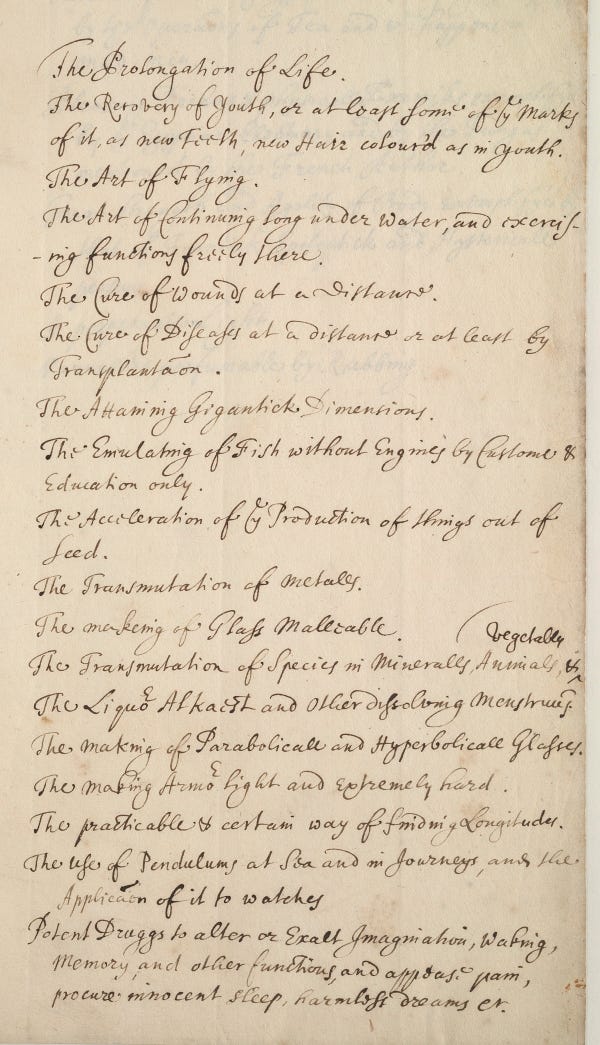 The Prolongation of Life.
The Recovery of Youth, or at least some of yͤ Marks
of it, as new Teeth, new Hair colour'd as in youth.
The Art of Flying.
The Art of Continuing long under water, and exercis-
-ing functions freely there.
The Cure of Wounds at a Distance.
The Cure of Diseases at a distance or at least by
Transplantaōn.
The Attaining Gigantick Dimensions.
The Emulating of Fish without Engines by Custome &
Education only.
The Acceleration of yͤ Production of things out of
Seed.
The Transmutation of Metalls.
The makeing of Glass Malleable.
Vegetabls
The Transmutation of Species in Mineralls, Animals, &
The Liquoʳ Alkaest and other dissolving Menstruums.
The making of Parabolicall and Hyperbolicall Glasses.
The making Armoʳ light and extremely hard.
The practicable & certain way of finding Longitudes.
The use of Pendulums at Sea and in Journeys, and the
Applicaōn of it to watches
Potent Druggs to alter or Exalt Imagination, Waking,
Memory, and other functions, and appease pain,
procure innocent sleep, harmless dreams etc.